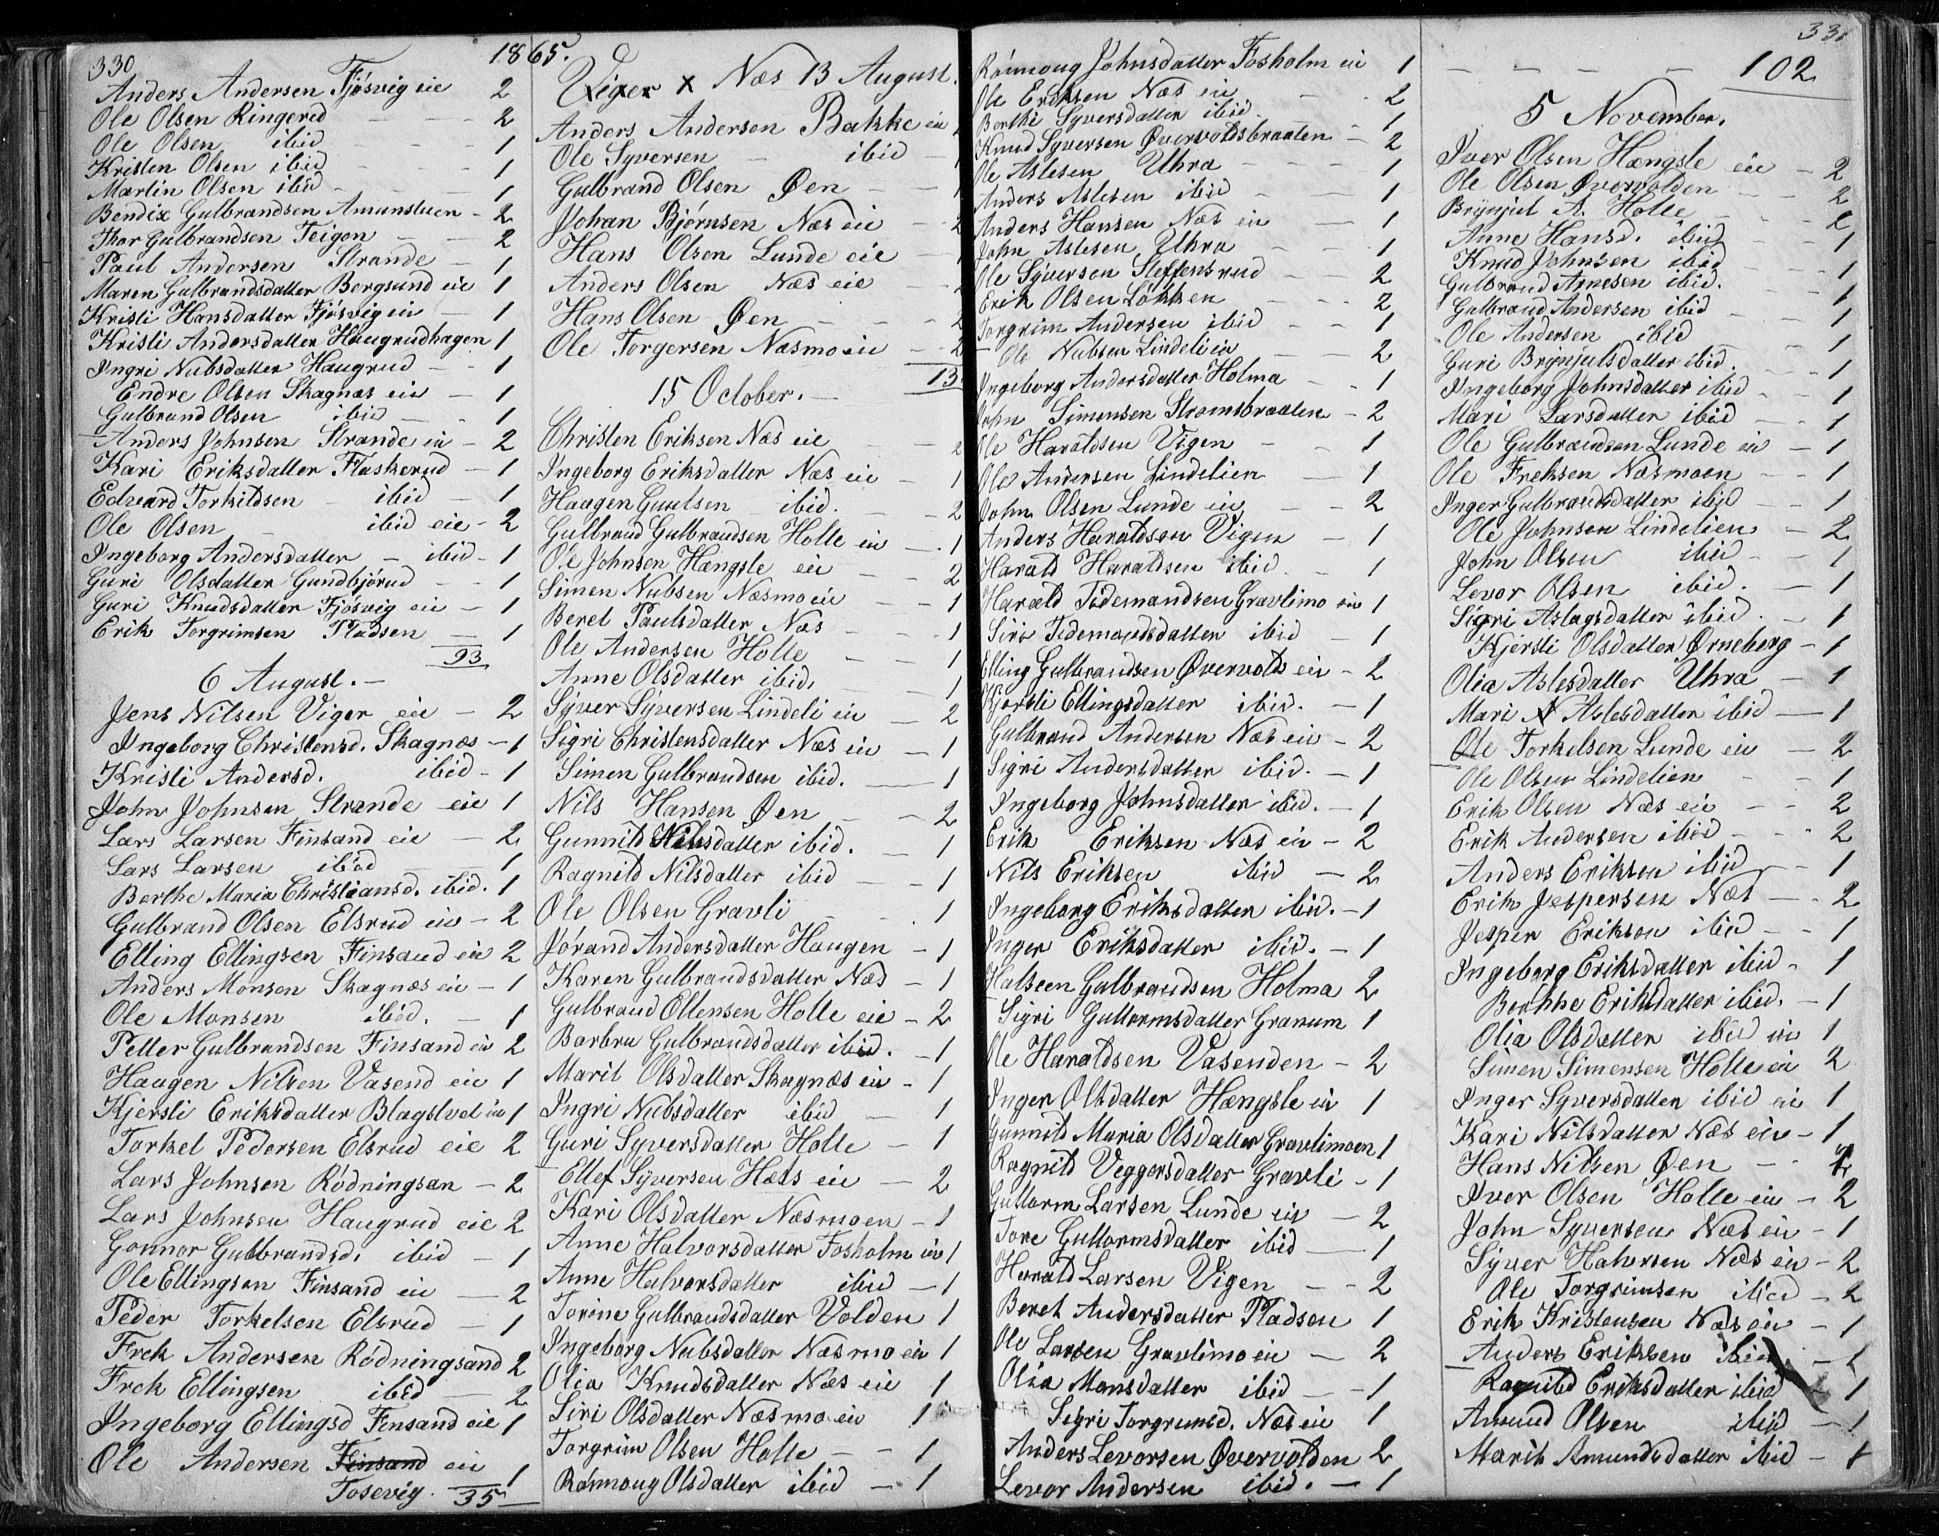 330
1865.
Anders Andersen Fjösvig eie 2
Ole Olsen Ringerud - - 2
Ole Olsen ibid - - 1
Kristen Olsen ibid - 1
Martin Olsen ibid - 1
Bendix Gulbrandsen Amunstuen - 2
Thor Gulbrandsen Teigen - 2
Paul Andersen Strande - 1
Maren Gulbrandsdatter Bergsund eie 1
Kristi Hansdatter Fjösvig ei - 1
Kristi Andersdatter Haugrudhagen 1
Ingri Nubsdatter Haugrud - - 1
Endre Olsen Skagnæs ei - 1
Gulbrand Olsen ibid - - 1
Anders Johnsen Strande ei - 2
Kari Eriksdatter Flaskerud - 1
Edvard Torkildsen - ibid - 1
Ole Olsen - ibid eie - 2
Ingeborg Andersdatter - ibid - 1
Guri Olsdatter Gundbjörud - - 1
Guri Knudsdatter Fjösvig eie - 1
Erik Torgrimsen Pladsen - 1
93
6 August. -
Jens Nilsen Viger eie - 2
Ingeborg Christensd. Skagnæs - 1
Kristi Andersd. ibid - 1
John Johnsen Strande eie 1
Lars Larsen Finsand eie - 2
Lars Larsen ibid - 1
Berthe Maria Christiansd. ibid. 1
Gulbrand Olsen Elsrud ei - 2
Elling Ellingsen Finsand eie 2
Anders Monsen Skagnæs ei - 1
Ole Monsen ibid. - 1
Petter Gulbrandsen Finsand ei 2
Haagen Nilsen Vasend eie 1
Kjersti Eriksdatter Blagstvet ei 1
Torkel Pedersen Elsrud eie 2
Lars Johnsen Rödningsan - 2
Lars Johnsen Haugrud eie 2
Gonnor Gulbrandsd. ibid - 1
Ole Ellingsen Finsand ei - 2
Peder Torkelsen Elsrud - 1
Frek Andersen Rödningsand 2
Frek Ellingsen ibid - 2
Ingeborg Ellingsd Finsand eie 1
Ole Andersen Finsand ei 1
Tosevig. 35
Viger x Næs 13 August.
Anders Andersen Bakke ei
Ole Syversen - ibid -
Gulbrand Olsen Øen - -
Johan Bjørnsen Næs ei - 2
Hans Olsen Lunde eie -
Anders Olsen Næs eie
Hans Olsen Øen - - 2
Ole Torgersen Næsmo ei - 2
13
15 October. -
Christen Eriksen Næs eie 2
Ingeborg Eriksdatter Næs ei - 1
Haagen Guulsen ibid. - 2
Gulbrand Gulbrandsen Holte ei - 1
Ole Johnsen Hængsle ei - 2
Simen Nubsen Næsmo ei - 1
Beret Paulsdatter Næs - - 1
Ole Andersen Holte - - 1
Anne Olsdatter ibid. 1
Syver Syversen Lindeli ei - 2
Sigri Christensdatter Næs ei - 1
Simen Gulbrandsen ibid. - 1
Nils Hansen Øen - - 2
Gunnild Nilsdatter ibid. - 1
Ragnild Nilsdatter ibid - - 1
Ole Olsen Gravli - - 1
Jörand Andersdatter Haugen - 1
Karen Gulbrandsdatter Næs - 1
Gulbrand Ollensen Holte eie - 2
Barbra Gulbrandsdatter ibid. - 1
Marit Olsdatter Skagnæs ei - 1
Ingri Nubsdatter ibid - 1
Guri Syversdatter Holte - 1
Ellef Syversen Hals ei - 2
Kari Olsdatter Næsmoen - 1
Anne Halvorsdatter Fosholm ei 1
Anne Halvorsdatter ibid - 1
Torine Gulbrandsdatter Volden 1
Ingeborg Nubsdatter Næsmo ei 1
Olia Knudsdatter Næs eie 1
Siri Olsdatter Næsmo ei 1
Torgrim Olsen Holte - - 1
Rönnoug Olsdatter ibid - 1
Rönnoug Johnsdatter Fosholm ei 1
Ole Eriksen Næs ei - - 2
Berthe Syversdatter ibid - 1
Knud Syversen Øvervoldsbraaten - 2
Ole Aslesen Uhra - - - 1
Anders Aslesen ibid - 1
Anders Hansen Næs ei - 1
John Aslesen Uhra - - 1
Ole Syversen Steffensrud - - 2
Erik Olsen Lökken - - 2
Torgrim Andersen ibid - - 1
Ole Nubsen Lindeli ei - - 2
Ingeborg Andersdatter Holma - - 1
John Simensen Strømsbraaten - 2
Ole Haraldsen Vigen - 1
Ole Andersen Lindelien - 1
John Olsen Lunde ei - - 2
Anders Haraldsen Vigen - 1
Harald Haraldsen ibid. - 1
Harald Tidemandsen Gravlimo ei 1
Siri Tidemandsdatter ibid - 1
Elling Gulbrandsen Øvervolds ei - 2
Kjersti Ellingsdatter ibid. - 1
Gulbrand Andersen Næs ei - 2
Sigri Andersdatter ibid. - 1
Ingeborg Johnsdatter ibid. - 1
Erik Eriksen Næs ei - 2
Nils Eriksen ibid - 2
Ingeborg Eriksdatter ibid. - 1
Inger Eriksdatter ibid. - 1
Halsten Gulbrandsen Holma 2
Sigri Guttormsdatter Granum 1
Ole Haraldsen Vasenden - 2
Inger Olsdatter Hængsle ei 1
Gunnild Maria Olsdatter Gravlimoen 1
Ragnild Veggersdatter Gravli - 1
Guttorm Larsen Lunde ei - 2
Tore Guttormsdatter ibid - 1
Harald Larsen Vigen - - 2
Beret Andersdatter Pladsen 1
Ole Larsen Gravlimo ei - 2
Olia Monsdatter ibid - - 1
Sigri Torgrimsd. Næs ei 1
Anders Levorsen Øvervolden 2
Levor Andersen ibid. - 1
331
- - - - 102
5 November.
Iver Olsen Hængsle ei - 2
Ole Olsen Øvervolden - - 2
Brynjul A. Holte - - 2
Anne Hansd. ibid - - 1
Knud Johnsen ibid - - 1
Gulbrand Arnesen ibid. - - 1
Gulbrand Andersen ibid - - 1
Ole Andersen ibid - - 1
Guri Brynjulsdatter ibid. - 1
Ingeborg Johnsdatter ibid - - 1
Mari Larsdatter ibid - - 1
Ole Gulbrandsen Lunde ei - 1
Ole Freksen Næsmoen - - 1
Inger Gulbrandsdatter ibid - - 1
Ole Johnsen Lindelien - - 2
John Olsen ibid - - 1
Levor Olsen ibid. - 1
Sigri Aslagsdatter ibid. - 1
Kjersti Olsdatter Ørneberg - 1
Olia Aslesdatter Uhra - 1
Mari Aslesdatter ibid - 1
Ole Torkelsen Lunde ei - 2
Ole Olsen Lindelien - - 1
Erik Olsen Næs ei - - 2
Erik Andersen ibid - - 2
Anders Eriksen ibid - - 1
Erik Jespersen Næs - - 2
Jesper Eriksen ibid - - 1
Ingeborg Eriksdatter ibid - 1
Berthe Eriksdatter ibid. - 1
Olia Olsdatter ibid ei 1
Simen Simensen Holte ei 2
Inger Syversdatter ibid ei 1
Kari Nilsdatter Næs ei - 1
Hans Nilsen Øen - - 2
Iver Olsen Holte ei - 2
John Syversen Næs ei - 1
Syver Halvorsen Næs ei - 2
Ole Torgrimsen ibid - 2
Erik Kristensen Næs ei - 1
Anders Eriksen ibid. - 1
Ragnild Eriksdatter ibid 1
Amund Olsen ibid - 1
Marit Amundsdatter ibid - 1